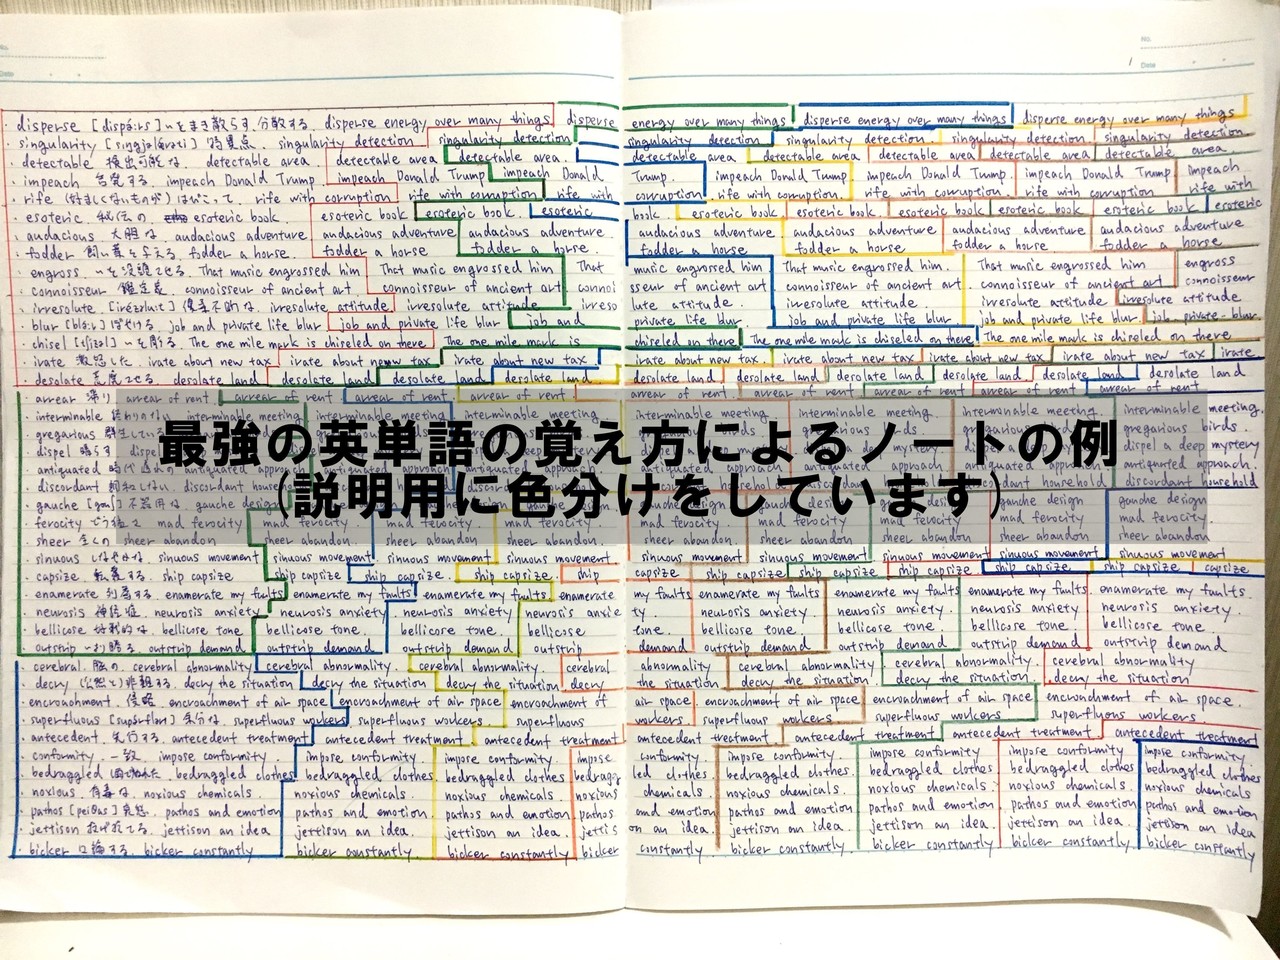 最強の英単語の覚え方によるノートの例
(説明用に色分けをしています)
No.
Date
No.
Date
・disperse [dispə́:rs] ~をまき散らす、分散する disperse energy over many things disperse energy over many things disperse energy over many things disperse energy over many things
・singularity 特異点. singularity detection singularity detection singularity detection singularity detection singularity detection singularity detection
・detectable 検出可能な. detectable area detectable area detectable area. detectable area detectable area detectable area detectable area detectable area.
・impeach 告発する. impeach Donald Trump impeach Donald Trump impeach Donald Trump impeach Donald Trump impeach Donald Trump impeach
・rife (好ましくないものが)はびこって. rife with corruption rife with corruption rife with corruption. rife with corruption rife with corruption. rife with corruption. rife with
・esoteric 秘伝の. esoteric book. esoteric book esoteric book. esoteric book. esoteric book. esoteric book. esoteric book esoteric book esoteric
・audacious 大胆な. audacious adventure audacious adventure audacious adventure. audacious adventure audacious adventure audacious adventure audacious adventure
・fodder 飼い葉を与える. fodder a horse. fodder a horse fodder a horse. fodder a horse fodder a horse. fodder a horse fodder a horse
・engross ~を没頭させる. That music engrossed him That music engrossed him That music engrossed him That music engrossed him. That music engrossed him engross
・connoisseur 鑑定家. connoisseur of ancient art. connoisseur of ancient art connoisseur of ancient art connoisseur of ancient art. connoisseur of ancient art connoisseur
・irresolute 優柔不断な irresolute attitude irresolute attitude irresolute attitude. irresolute attitude. irresolute attitude irresolute attitude
・blur ぼやける. job and private life blur job and private life blur job and private life blur job and private life blur job and private life blur job private-blur
・chisel ~を彫る. The one mile mark is chiseled on there The one mile mark is chiseled on there The one mile mark is chiseled on there The one mile mark is chiseled on there
・irate 激怒した. irate about new tax irate about new tax irate about new tax irate about new tax irate about new tax irate about new tax irate about new tax irate
・desolate 荒廃させる desolate land desolate land desolate land desolate land desolate land desolate land desolate land desolate land desolate land
・arrear 滞り arrear of rent arrear of rent arrear of rent arrear of rent arrear of rent. arrear of rent arrear of rent arrear of rent
・interminable interminable meeting interminable meeting interminable meeting. interminable meeting. interminable meeting interminable meeting. interminable meeting.
・gregarious 群生している gregarious birds.
・dispel 晴らす dispel dispel a deep mystery
・antiquated approach antiquated approach antiquated approach antiquated approach antiquated approach.
・discordant 調和しない discordant household discordant household
・gauche 不器用な gauche design gauche design gauche design
・ferocity mad ferocity mad ferocity mad ferocity mad ferocity mad ferocity mad ferocity
・sheer 全くの sheer abandon sheer abandon. sheer abandon sheer abandon. sheer abandon sheer abandon sheer abandon
・sinuous しなやかな sinuous movement sinuous movement. sinuous movement sinuous movement sinuous movement sinuous movement sinuous movement sinuous movement sinuous movement
・capsize 転覆する. ship capsize ship capsize ship capsize. ship capsize. ship capsize ship capsize ship capsize ship capsize ship capsize ship capsize
・enamerate 列挙する. enamerate my faults enamerate my faults enamerate my faults enamerate my faults enamerate my faults. enamerate my faults enamerate my faults. enamerate my faults
・neurosis 神経症. neurosis anxiety neurosis anxiety. neurosis anxiety. neurosis anxiety neurosis anxiety. neurosis anxiety neurosis anxiety neurosis anxiety.
・bellicose 好戦的な. bellicose tone bellicose tone. bellicose tone. bellicose tone. bellicose tone. bellicose tone bellicose tone bellicose tone.
・outstrip 上回る. outstrip demand outstrip demand outstrip demand outstrip demand outstrip demand outstrip demand. outstrip demand outstrip demand
・cerebral 脳の. cerebral abnormality cerebral abnormality. cerebral abnormality. cerebral abnormality cerebral abnormality. cerebral abnormality. cerebral abnormality
・decry (公然と)非難する. decry the situation decry the situation decry the situation decry the situation decry the situation decry the situation decry the situation.
・encroachment 侵略 encroachment of air space encroachment of air space encroachment of air space. encroachment of air space encroachment of air space encroachment of air space.
・superfluous 余分な. superfluous workers superfluous workers. superfluous workers superfluous workers superfluous workers superfluous workers.
・antecedent 先行する. antecedent treatment antecedent treatment antecedent treatment antecedent treatment antecedent treatment antecedent treatment antecedent treatment
・conformity 一致 impose conformity. impose conformity. impose conformity. impose conformity. impose conformity. impose conformity. impose conformity impose conformity.
・bedraggled bedraggled clothes bedraggled clothes bedraggled clothes bedraggled clothes bedraggled clothes bedraggled clothes bedraggled clothes bedraggled clothes
・noxious 有毒な noxious chemicals noxious chemicals. noxious chemicals. noxious chemicals. noxious chemicals noxious chemicals. noxious chemicals. noxious chemicals
・pathos 哀愁. pathos and emotion pathos and emotion pathos and emotion pathos and emotion pathos and emotion pathos and emotion. pathos and emotion pathos and emotion
・jettison 投げ捨てる. jettison an idea jettison an idea. jettison an idea. jettison an idea. jettison an idea. jettison an idea. jettison an idea. jettison an idea
・bicker 口論する. bicker constantly bicker constantly. bicker constantly bicker constantly bicker constantly. bicker constantly bicker constantly. bicker constantly